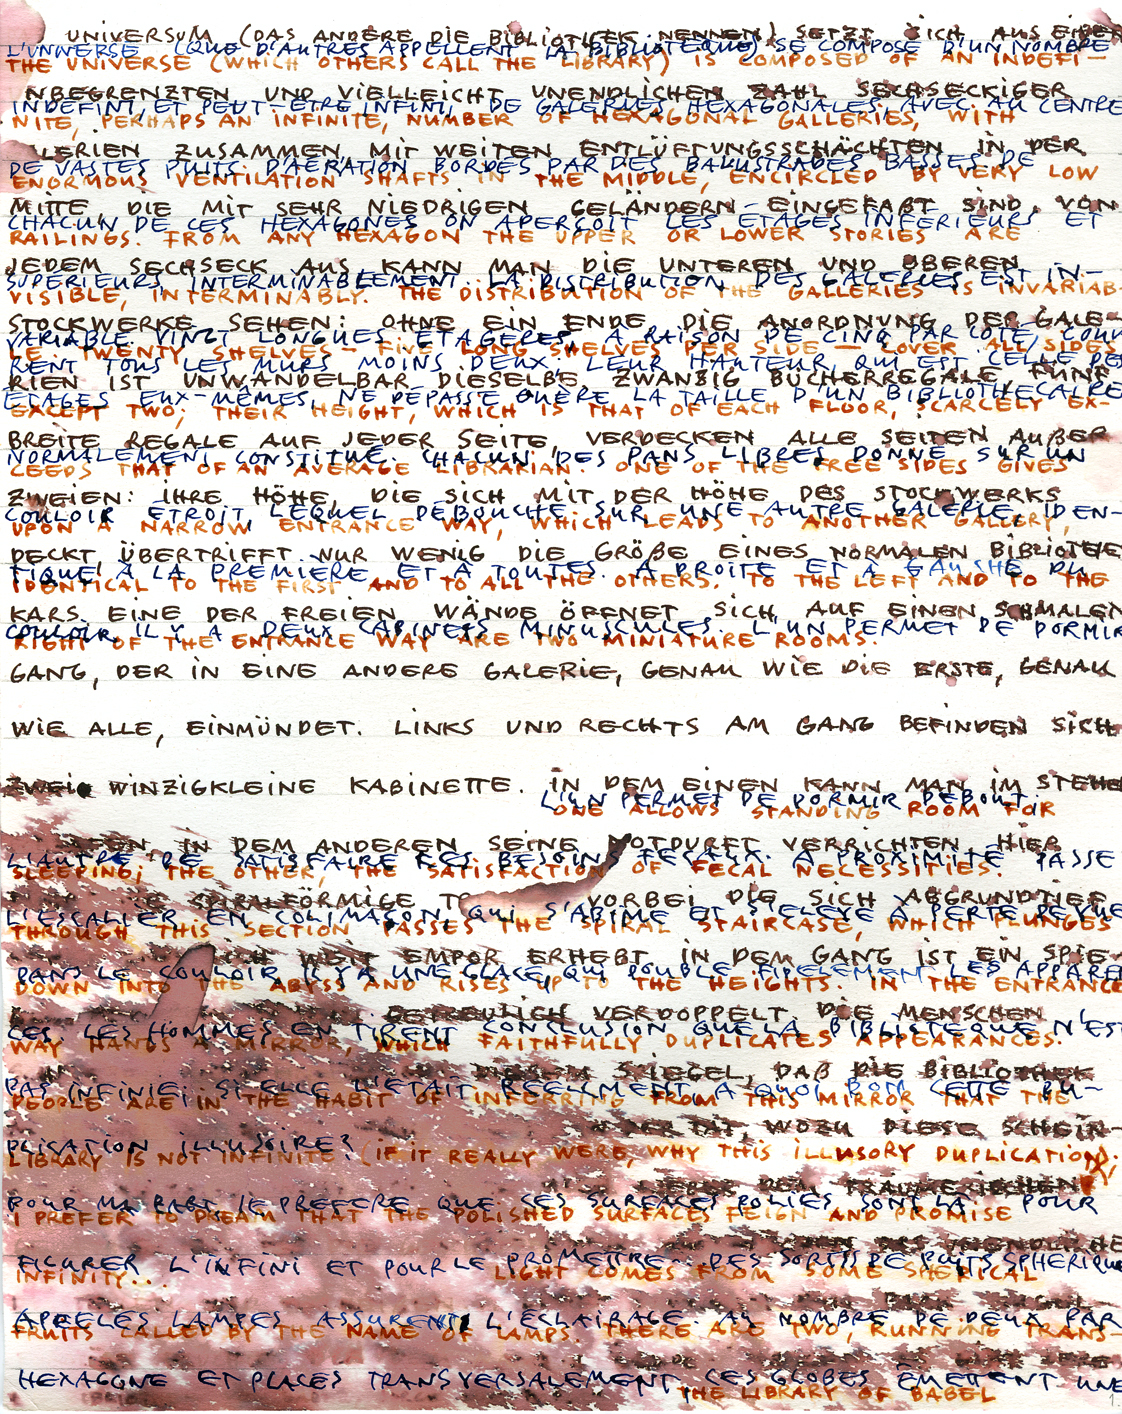 UNIVERSUM (DAS ANDERE DIE BIBLIOTHEK NENNEN) SETZT SICH AUS EINER
L'UNIVERSE (QUE D'AUTRES APPELLENT LA BIBLIOTEQUE) SE COMPOSE D'UN NOMBRE
THE UNIVERSE (WHICH OTHERS CALL THE LIBRARY) IS COMPOSED OF AN INDEFI-
UNBEGRENZTEN UND VIELLEICHT UNENDLICHEN ZAHL SECHSECKIGER
INDEFINI, ET PEUT-ETRE INFINI, DE GALERIES HEXAGONALES, AVEC AU CENTRE
NITE, PERHAPS AN INFINITE, NUMBER OF HEXAGONAL GALLERIES, WITH
LERIEN ZUSAMMEN, MIT WEITEN ENTLÜFTUNGSSCHÄCHTEN IN DER
DE VASTES PUITS D'AERATION BORDES PAR DES BALUSTRADES BASSES. DE
ENORMOUS VENTILATION SHAFTS IN THE MIDDLE, ENCIRCLED BY VERY LOW
MITTE DIE MIT SEHR NIEDRIGEN GELÄNDERN EINGEFAßT SIND. VON
CHACUN DE CES HEXAGONES ON APERÇOIT LES ETAGES INFERIEURS ET
RAILINGS. FROM ANY HEXAGON THE UPPER OR LOWER STORIES ARE
JEDEM SECHSECK AUS KANN MAN DIE UNTEREN UND OBEREN
SUPERIEURS, INTERMINABLEMENT. LA DISTRIBUTION DES GALERIES EST IN-
VISIBLE, INTERMINABLY. THE DISTRIBUTION OF THE GALLERIES IS INVARIAB-
STOCKWERKE SEHEN: OHNE EIN ENDE. DIE ANORDNUNG DER GALE-
VARIABLE. VINGT LONGUES ETAGERES, A RAISON DE CINQ PAR COTE, COUV
LE. TWENTY SHELVES - FIVE LONG SHELVES PER SIDE - COVER ALL SIDES
RENT TOUS LES MURS MOINS DEUX; LEUR HAUTEUR, QUI EST CELLE DES
RIEN IST UNWANDELBAR DIESELBE. ZWANZIG BÜCHERREGALE, FÜNF
ETAGES EUX-MÊMES, NE DEPASSE GUERE LA TAILLE D'UN BIBLIOTHECAIRE
EXCEPT TWO; THEIR HEIGHT, WHICH IS THAT OF EACH FLOOR, SCARCELY EX-
BREITE REGALE AUF JEDER SEITE, VERDECKEN ALLE SEITEN AUßER
NORMALEMENT CONSTITUE. CHACUN DES PANS LIBRES DONNE SUR UN
CEEDS THAT OF AN AVERAGE LIBRARIAN. ONE OF THE FREE SIDES GIVES
ZWEIEN: IHRE HÖHE, DIE SICH MIT DER HÖHE DES STOCKWERKS
COULOIR ETROIT, LEQUEL DEBOUCHE SUR UNE AUTRE GALERIE, IDEN-
UPON A NARROW ENTRANCE WAY, WHICH LEADS TO ANOTHER GALLERY,
DECKT ÜBERTRIFFT NUR WENIG DIE GRÖßE EINES NORMALEN BIBLIOTHE
TIQUE À LA PREMIERE ET A TOUTES. A DROITE ET A GAUCHE DU
IDENTICAL TO THE FIRST AND TO ALL THE OTHERS. TO THE LEFT AND TO THE
KARS. EINE DER FREIEN WÄNDE ÖFFNET SICH AUF EINEN SCHMALEN
COULOIR, IL Y A DEUX CABINETS MINUSCULES. L'UN PERMET DE DORMIR
RIGHT OF THE ENTRANCE WAY ARE TWO MINIATURE ROOMS.
GANG, DER IN EINE ANDERE GALERIE, GENAU WIE DIE ERSTE, GENAU
WIE ALLE, EINMÜNDET. LINKS UND RECHTS AM GANG BEFINDEN SICH
ZWEI WINZIGKLEINE KABINETTE. IN DEM EINEN KANN MAN IM STEHE
L'UN PERMET DE DORMIR DEBOUT;
ONE ALLOWS STANDING ROOM FOR
FEN IN DEM ANDEREN SEINE NOTDURFT VERRICHTEN. HIER
L'AUTRE DE SATISFAIRE LES BESOINS FECAUX. A PROXIMITÉ PASSE
SLEEPING; THE OTHER, THE SATISFACTION OF FECAL NECESSITIES.
SPIRALFÖRMIGE VORBEI DIE SICH ABGRUNDTIEF
L'ESCALIER EN COLIMAÇON, QUI S'ABIME ET S'ELEVE À PERTE DE VUE
THROUGH THIS SECTION PASSES THE SPIRAL STAIRCASE, WHICH PLUNGES
WEIT EMPOR ERHEBT IN DEM GANG IST EIN SPIE-
DANS LE COULOIR IL Y A UNE GLACE, QUI DOUBLE FIDELEMENT LES APPAREN
DOWN INTO THE ABYSS AND RISES UP TO THE HEIGHTS. IN THE ENTRANCE
GETREULICH VERDOPPELT. DIE MENSCHEN
CES. LES HOMMES EN TIRENT CONCLUSION QUE LA BIBLIOTEQUE N'EST
WAY HANGS A MIRROR, WHICH FAITHFULLY DUPLICATES APPEARANCES.
DIESEM SPIEGEL, DAß DIE BIBLIOTHEK
PAS INFINIE; SI ELLE L'ETAIT REELLMENT, A QUOI BON CETTE DU-
PEOPLE ARE IN THE HABIT OF INFERRING FROM THIS MIRROR THAT THE
IST, WOZU DIESE SCHEIN-
PLICATION ILLUSOIRE?
LIBRARY IS NOT INFINITE (IF IT REALLY WERE, WHY THIS ILLUSORY DUPLICATION?);
POUR MA PART JE PREFERE QUE CES SURFACES POLIES SONT LÀ POUR
I PREFER TO DREAM THAT THE POLISHED SURFACES FEIGN AND PROMISE
FIGURER L'INFINI ET POUR LE PROMETTRE. DES SORTES DE FRUITS SPHERIQUE
INFINITY... LIGHT COMES FROM SOME SPHERICAL
APPELES LAMPES ASSURENT L'ÉCLAIRAGE. AU NOMBRE DE DEUX PAR
FRUITS CALLED BY THE NAME OF LAMPS. THERE ARE TWO, RUNNING TRANS-
HEXAGONE ET PLACES TRANSVERSALEMENT CES GLOBES ÊMETTENT UNE
THE LIBRARY OF BABEL